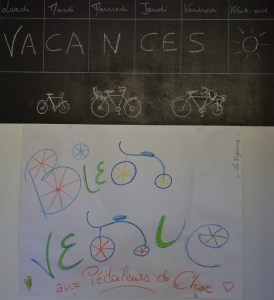 Lundi Mardi Mercredi Jeudi Vendredi Week-end
VACANCES
BIEN
VENUE
aux Pédaleurs de Choc